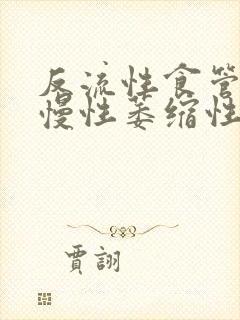 反流性食管
慢性萎缩性
賈詡